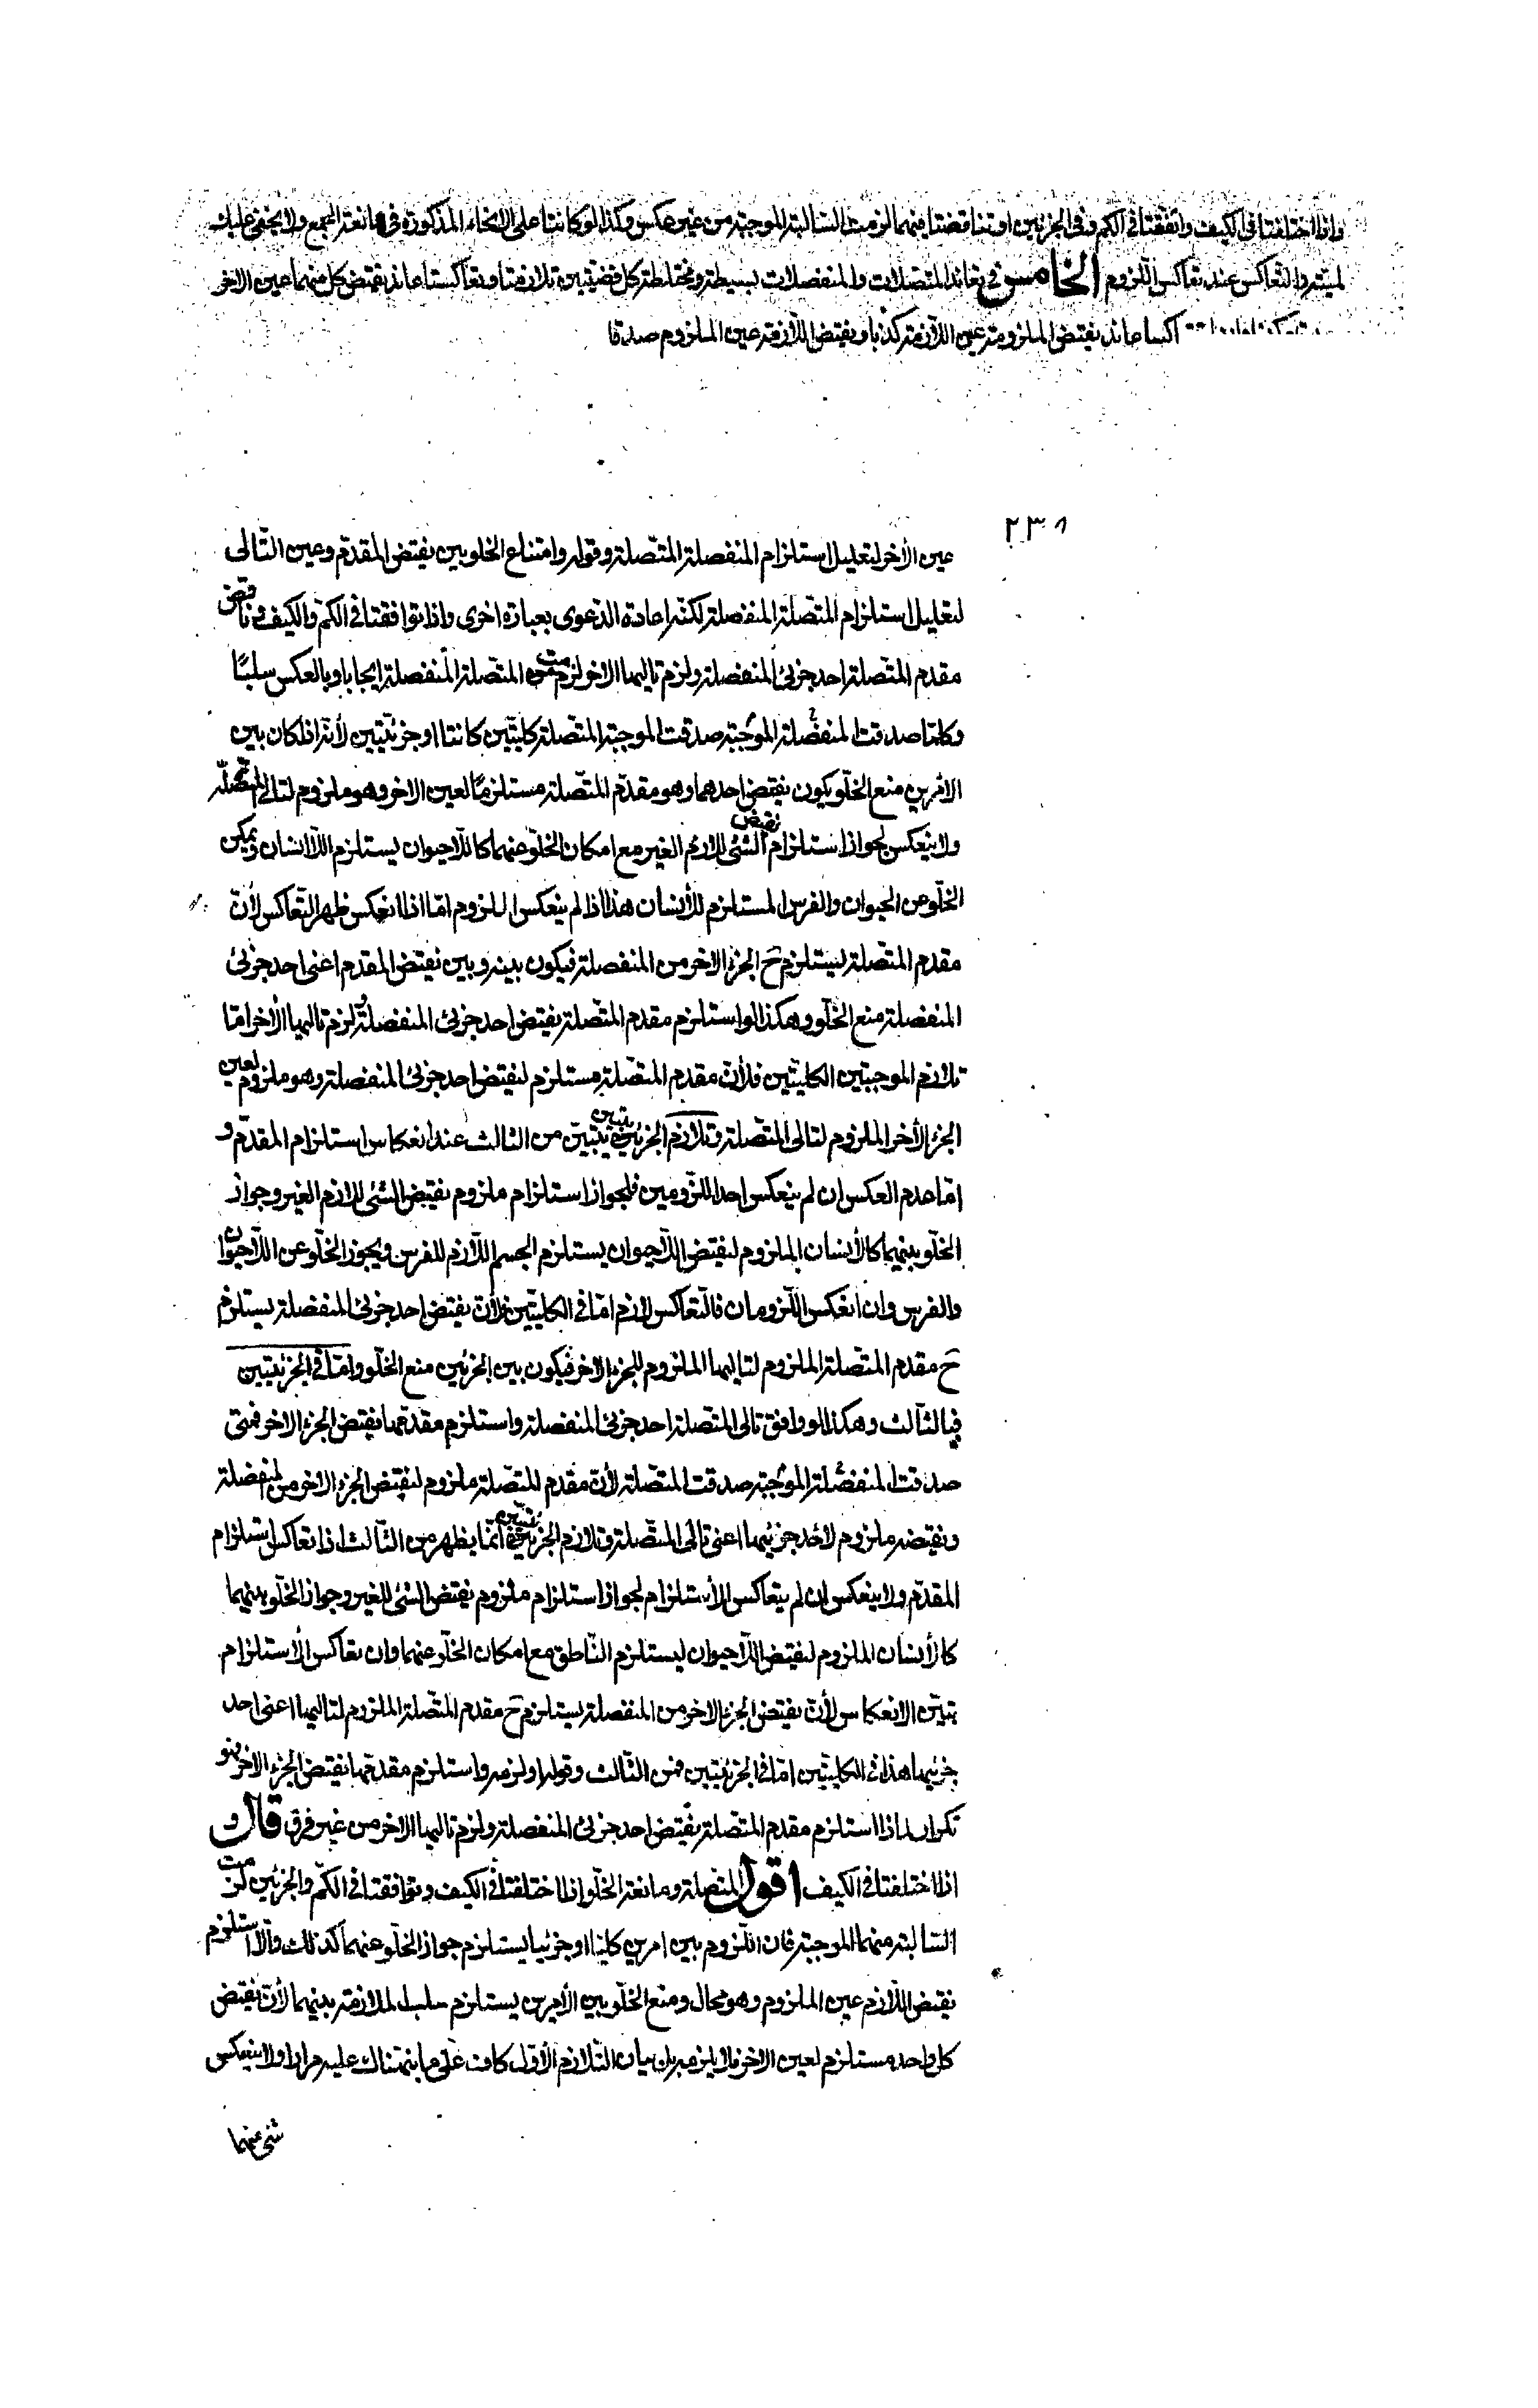 واذا اختلفتا فى الكيف واتفقتا فى الكم وفى الجزئين او تناقضتا فيهما لزمت السالبة الموجبة من غير عكس وكذا لو كانتا على الانحاء المذكورة فى مانعة الجمع ولا يخفى عليك
لمية والتعاكس عند تعاكس اللزوم الخامس فى تعاند المتصلات والمنفصلات بسيطة ومختلطة كل قضيتين تلازمتا وتعاكستا عاند نقيض كل منهما عين الاخر
اكسا عاند نقيض الملزومة عين اللازمة كذبا ونقيض اللازمة عين الملزوم صدقا
٢٣٨
عين الأخر لتعليل استلزام المنفصلة المتصلة وقوله وامتناع الخلو بين نقيض المقدّم وعين التّالى
لتعليل استلزام المتصلة المنفصلة لكنه اعادة الدعوى بعبارة اخرى واذا توافقتا فى الكم والكيف وناقض
مقدم المتّصلة احد جزئى المنفصلة ولزم تاليها الاخر لزمت المتّصلة المنفصلة ايجابا وبالعكس سلبًا
وكلما صدقت المنفصلة الموجبة صدقت الموجبة المتصلة كليتين كانتا او جزئيتين لأنه اذا كان بين
الأمرين منع الخلّو يكون نقيض احدهما وهو مقدّم المتّصلة مستلزمًا لعين الاخر وهو ملزوم لتالى المتصلة
ولا ينعكس لجواز استلزام نقيض الشئ للازم الغير مع امكان الخلّو عنهما كاللاحيوان يستلزم اللّاانسان ويمكن
الخلّو من الحيوان والفرس المستلزم للّاانسان هذا اذا لم ينعكس اللزوم امّا اذا انعكس ظهر التّعاكس لأنّ
مقدم المتّصلة ليستلزم ح الجزء الاخر من المنفصلة فيكون بينه وبين نقيض المقدم اعنى احد جزئى
المنفصلة منع الخلّو وهكذا لو استلزم مقدم المتّصلة نقيض احد جزئى المنفصلة ولزم تاليها الأخر امّا
تلازم الموجبتين الكليّتين فلأنّ مقدم المتصلة مستلزم لنقيض احد جزئى المنفصلة وهو ملزوم لعين
الجزء الأخر الملزوم لتالى المتّصلة وتلازم الجزئيتين يتبيّن من الثالث عند انعكاس استلزام المقدّم و
امّا عدم العكس ان لم ينعكس احد اللّزومين فلجواز استلزام ملزوم نقيض الشئ للازم الغير وجواز
الخلّو بينهما كالأنسان الملزوم لنقيض اللّاحيوان يستلزم الجسم اللّازم للفرس ويجوز الخلّو عن اللّاحيوان
والفرس وان انعكس اللّزومان فالتعاكس لازم امّا فى الكليتين فلأنّ نقيض احد جزئى المنفصلة يستلزم
ح مقدم المتّصلة الملزوم لتاليها الملزوم للجزء الاخر فيكون بين الجزئين منع الخلّو وامّا فى الجزئيتين
فبالثالث وهكذا لو وافق تالى المتّصلة احد جزئى المنفصلة واستلزم مقدمها نقيض الجزء الاخر فمتى
صدقت المنفصلة الموجبة صدقت المتّصلة لأنّ مقدم المتّصلة ملزوم لنقيض الجزء الاخر من المنفصلة
ونقيضه ملزوم لاحد جزئيها اعنى تالى المتّصلة وتلازم الجزئيتين انّما يظهر من الثّالث اذا تعاكس استلزام
المقدّم ولا ينعكس ان لم يتعاكس الأستلزام لجواز استلزام ملزوم نقيض الشئ للغير وجواز الخلّو بينهما
كالأنسان الملزوم لنقيض اللّاحيوان ليستلزم النّاطق مع امكان الخلّو عنهما وان تعاكس الأستلزام
تبيّن الانعكاس لأنّ نقيض الجزء الاخر من المنفصلة يستلزم ح مقدم المتّصلة الملزوم لتاليها اعنى احد
جزئيها هذا فى الكليتين امّا فى الجزئيتين فمن الثّالث وقوله او لزمه واستلزم مقدمها نقيض الجزء الاخر فهو
تكرار لما اذا استلزم مقدم المتّصلة نقيض احد جزئى المنفصلة ولزم تاليها الاخر من غير فرق قال و
اذا اختلفتا فى الكيف اقول المتصلة ومانعة الخلّو اذا اختلفتا فى الكيف وتوافقتا فى الكمّ والجزئين لزمت
السّالبة منهما الموجبة فان اللّزوم بين امرين كليّا او جزئيا يستلزم جواز الخلّو عنهما كذلك والّا استلزم
نقيض اللّازم عين الملزوم وهو محال ومنع الخلّو بين الأمرين يستلزم سلب الملازمة بينهما لأنّ نقيض
كل واحد مستلزم لعين الاخر فلا يلزمه بل بيان التّلازم الأوّل كاف على ما نبهناك عليه مرارا ولا ينعكس
شئ منهما